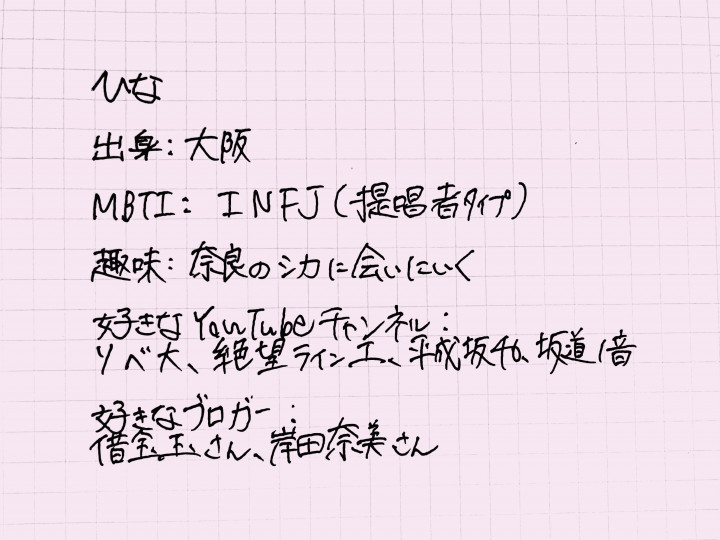 ひな
出身：大阪
MBTI：INFJ（提唱者タイプ）
趣味：奈良のシカに会いにいく
好きなYouTubeチャンネル：
リベ大、絶望ライン工、平成坂46、坂道1音
好きなブロガー：
借金玉さん、岸田奈美さん